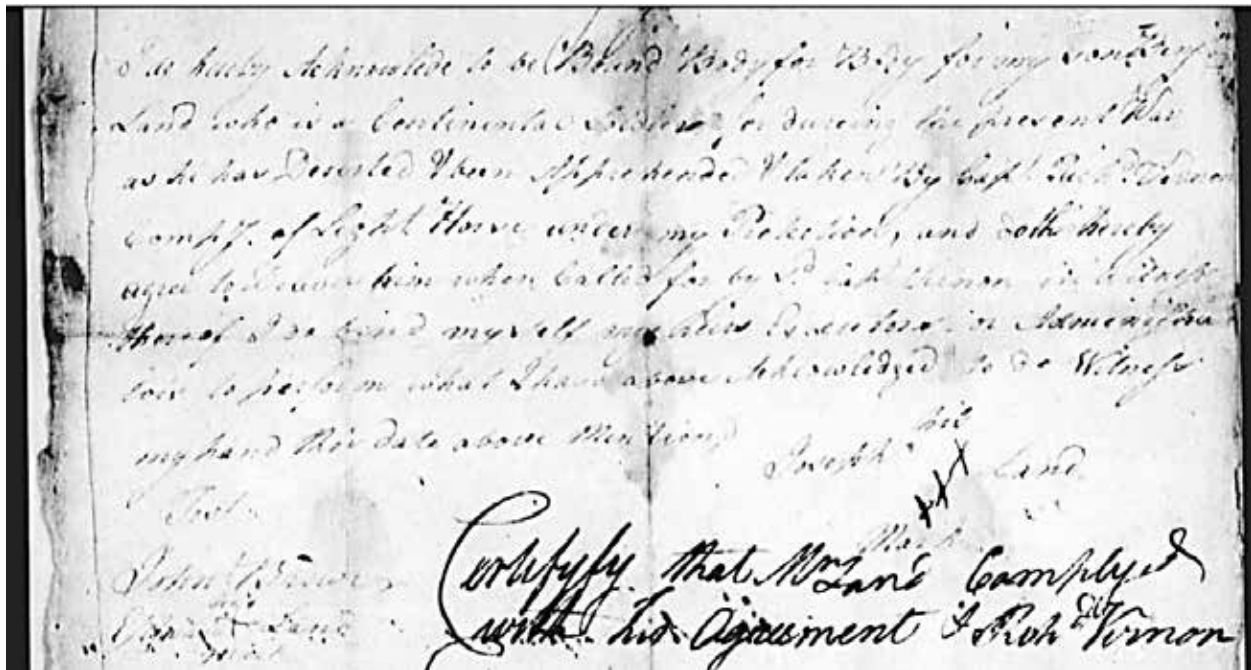 I do hereby Acknowlede to be Bound Body for Body for my son
Land who is a Continental Soldier for dureing the present War
as he has Deserted & been Apprehended & taken By Capt. Richd. Vernon
Compy. of Light Horse under my Protection, and doth hereby
agree to Deliver him when Called for by Sd. Capt Vernon in Witness
thereof I do bind myself my heirs Executors or Administra
tors to perform what I have above Acknowledged to do Witness
my hand this date above Mentiond
his
Joseph Land
Mark
Test
John Brown
Land
Certifyfy that Mr Land Complyed
with his Agreement Richd Vernon